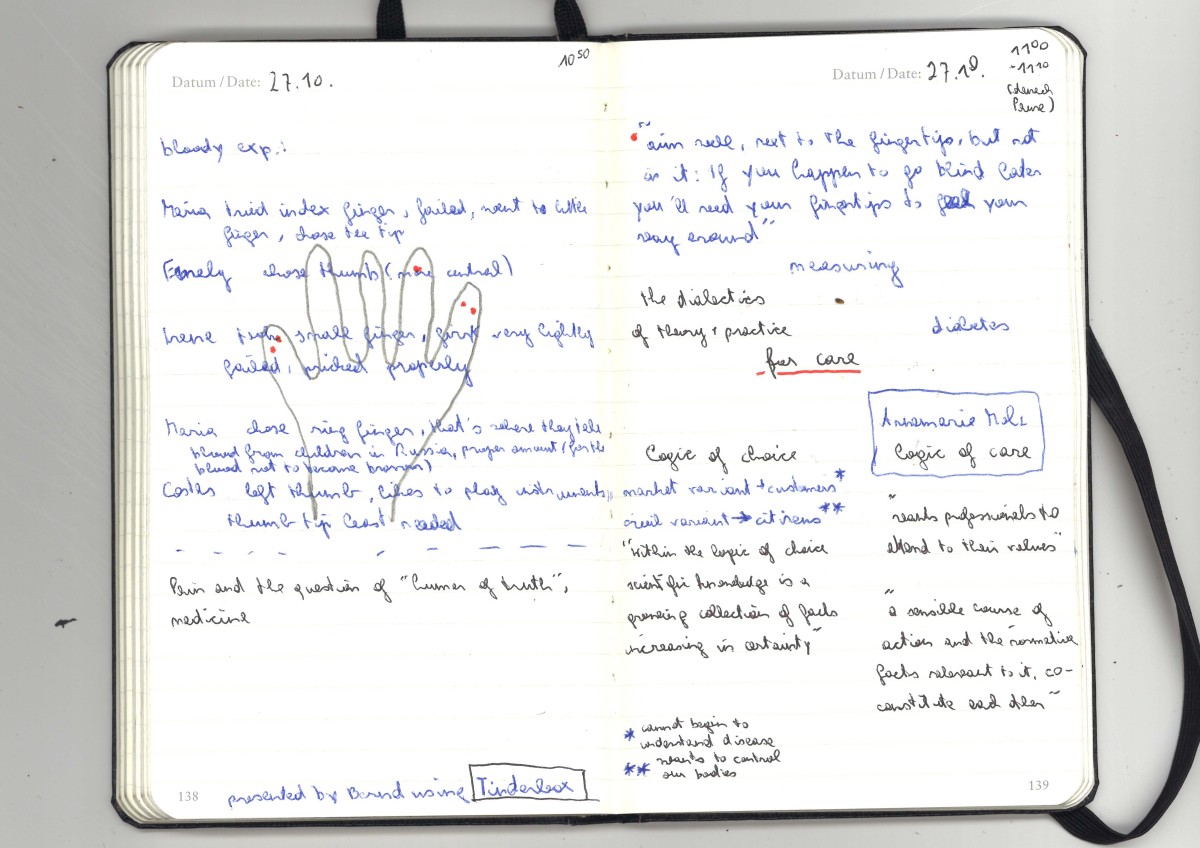 10 50
Datum / Date: 27.10.
bloody exp.:
Maria tried index finger, failed, went to little
finger, chose the tip
chose thumb (more central)
Irene took small finger, first very lightly
failed, pricked properly
Maria chose ring finger, that's where they take
blood from children in Russia, proper amount (for the
blood not to become brown)
left thumb, likes to play instruments,
thumb tip least needed
Pain and the question of "humer of truth",
medicine
138
presented by Bernd using Tinderbox
11 00
-11 10
Datum / Date: 27.10.
"aim well, next to the fingertips, but not
in it: If you happen to go blind later
you'll need your fingertips to feel your
way around"
measuring
the dialectics
of theory + practice
diabetes
for care
Annemarie Mol:
Logic of care
Logic of choice
market variant → customers*
civil variant → citizens**
"within the logic of choice
scientific knowledge is a
growing collection of facts
increasing in certainty"
"wants professionals to
attend to their values"
"a sensible course of
action and the normative
facts relevant to it, co-
constitute each other"
* cannot begin to
understand disease
** wants to control
our bodies
139